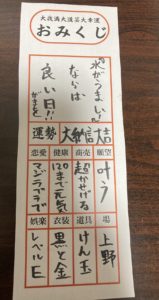 大我満大道芸大幸運
おみくじ
水がうまい！
ならば
良い日!!
がまとを
運勢 大納言吉
恋愛 健康 商売 願望
マジラブラブで
120まで元気
超かせげる
叶う
娯楽 衣装 道具 場
レベルE
黒と金
けん玉
上野